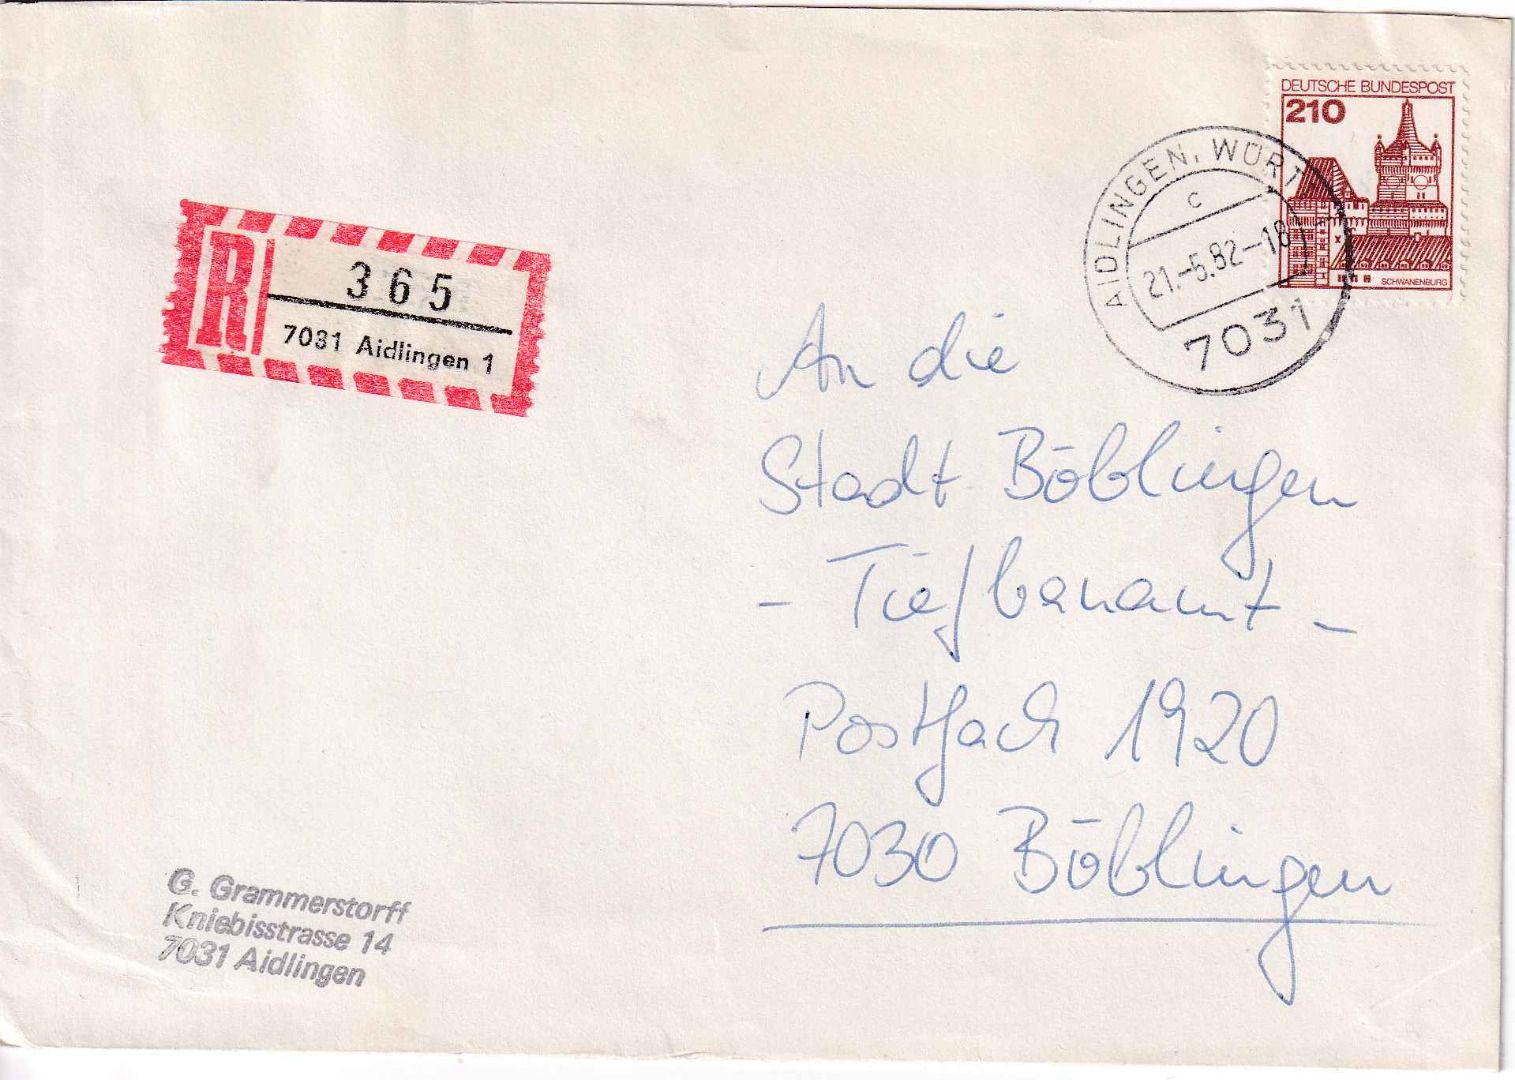 DEUTSCHE BUNDESPOST
210
SCHWANENBURG
AIDLINGEN, WÜRTT
c
21.-5.82-18
7031
R
365
7031 Aidlingen 1
An die
Stadt Böblingen
- Tiefbauamt -
Postfach 1920
7030 Böblingen
G. Grammerstorff
Kniebisstrasse 14
7031 Aidlingen